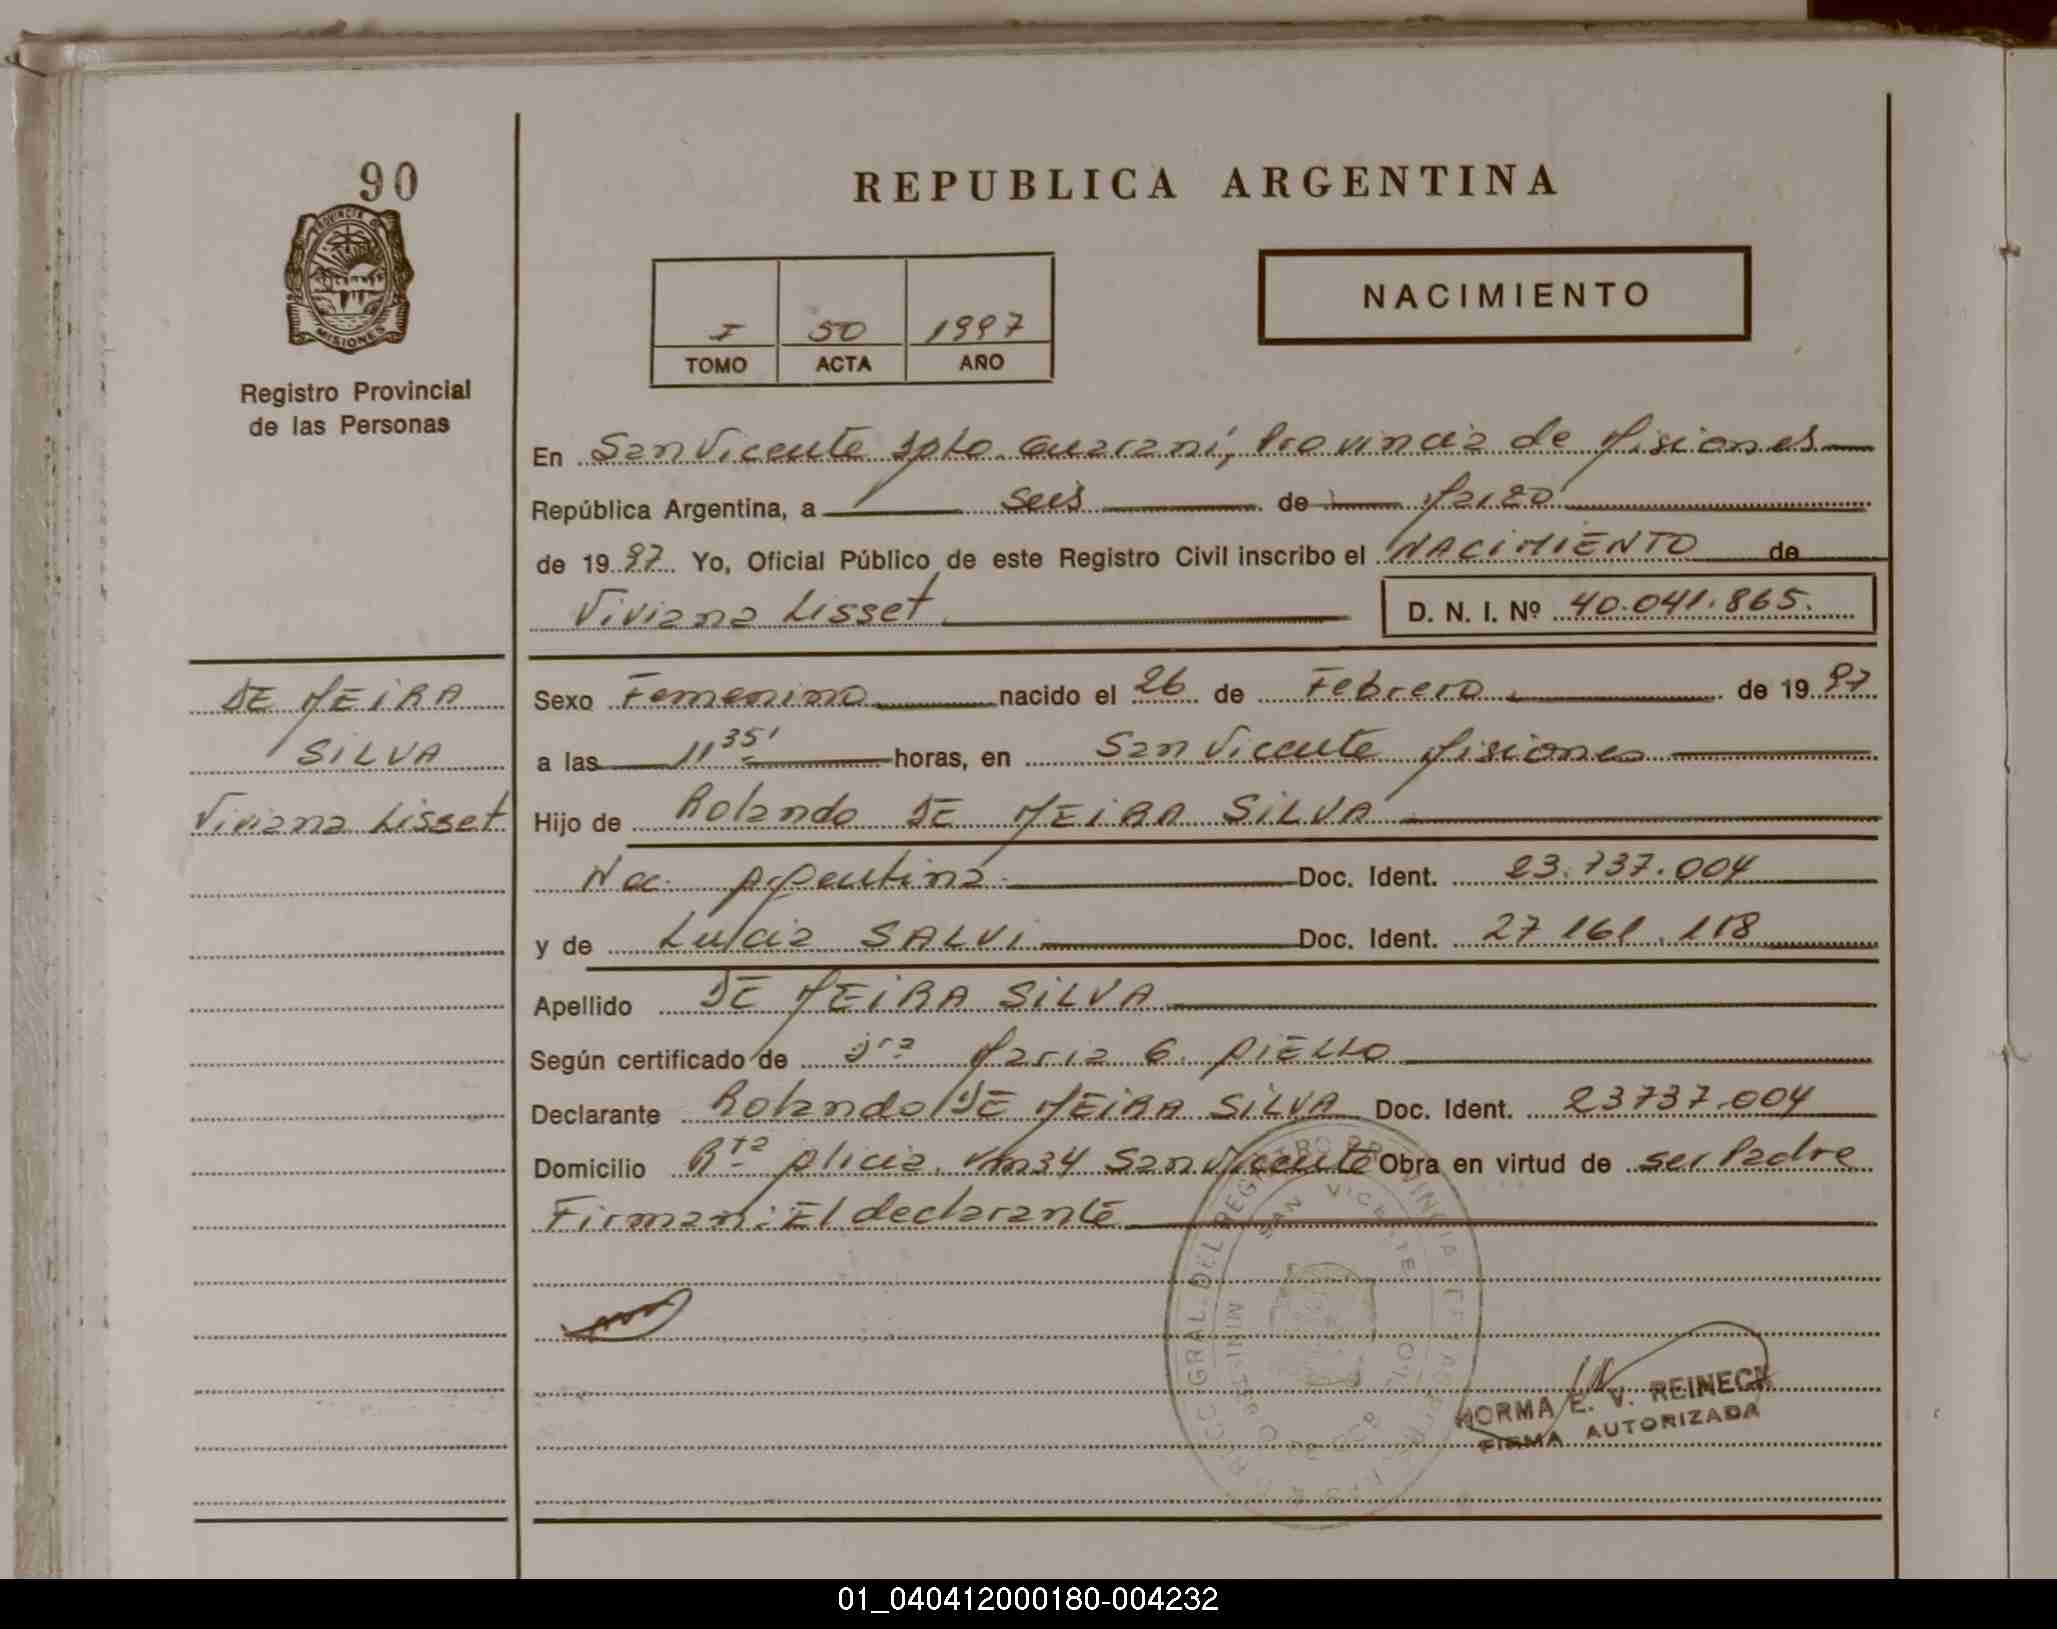 90
PROVINCIA DE
MISIONES
Registro Provincial
de las Personas
REPUBLICA ARGENTINA
I 50 1997
TOMO ACTA AÑO
NACIMIENTO
En San Vicente Dpto. Guaraní, Provincia de Misiones
República Argentina, a seis de Marzo
de 1997 Yo, Oficial Público de este Registro Civil inscribo el NACIMIENTO de
Viviana Lisset D. N. I. Nº 40.041.865.
DE MEIRA
SILVA
Viviana Lisset
Sexo Femenino nacido el 26 de Febrero de 1997
a las 11 35' horas, en San Vicente Misiones
Hijo de Rolando DE MEIRA SILVA
Nac. Argentina Doc. Ident. 23.737.004
y de Lucia SALVI Doc. Ident. 27 161.118
Apellido DE MEIRA SILVA
Según certificado de Dra Maria G. AIELLO
Declarante Rolando DE MEIRA SILVA Doc. Ident. 23737.004
Domicilio Rta Alicia. Km34 San Vicente Obra en virtud de ser Padre
Firman: El declarante
SAN VICENTE
NORMA E. V. REINECK
FIRMA AUTORIZADA
01_040412000180-004232